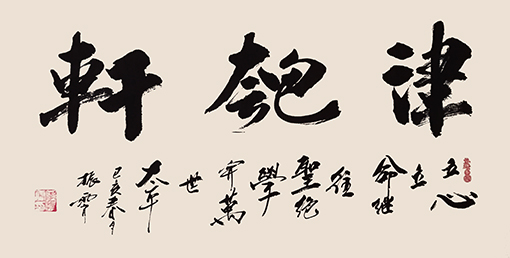 津匏軒
立心
立
命继
往
聖绝
學
开萬
世
太平
己亥春月
振